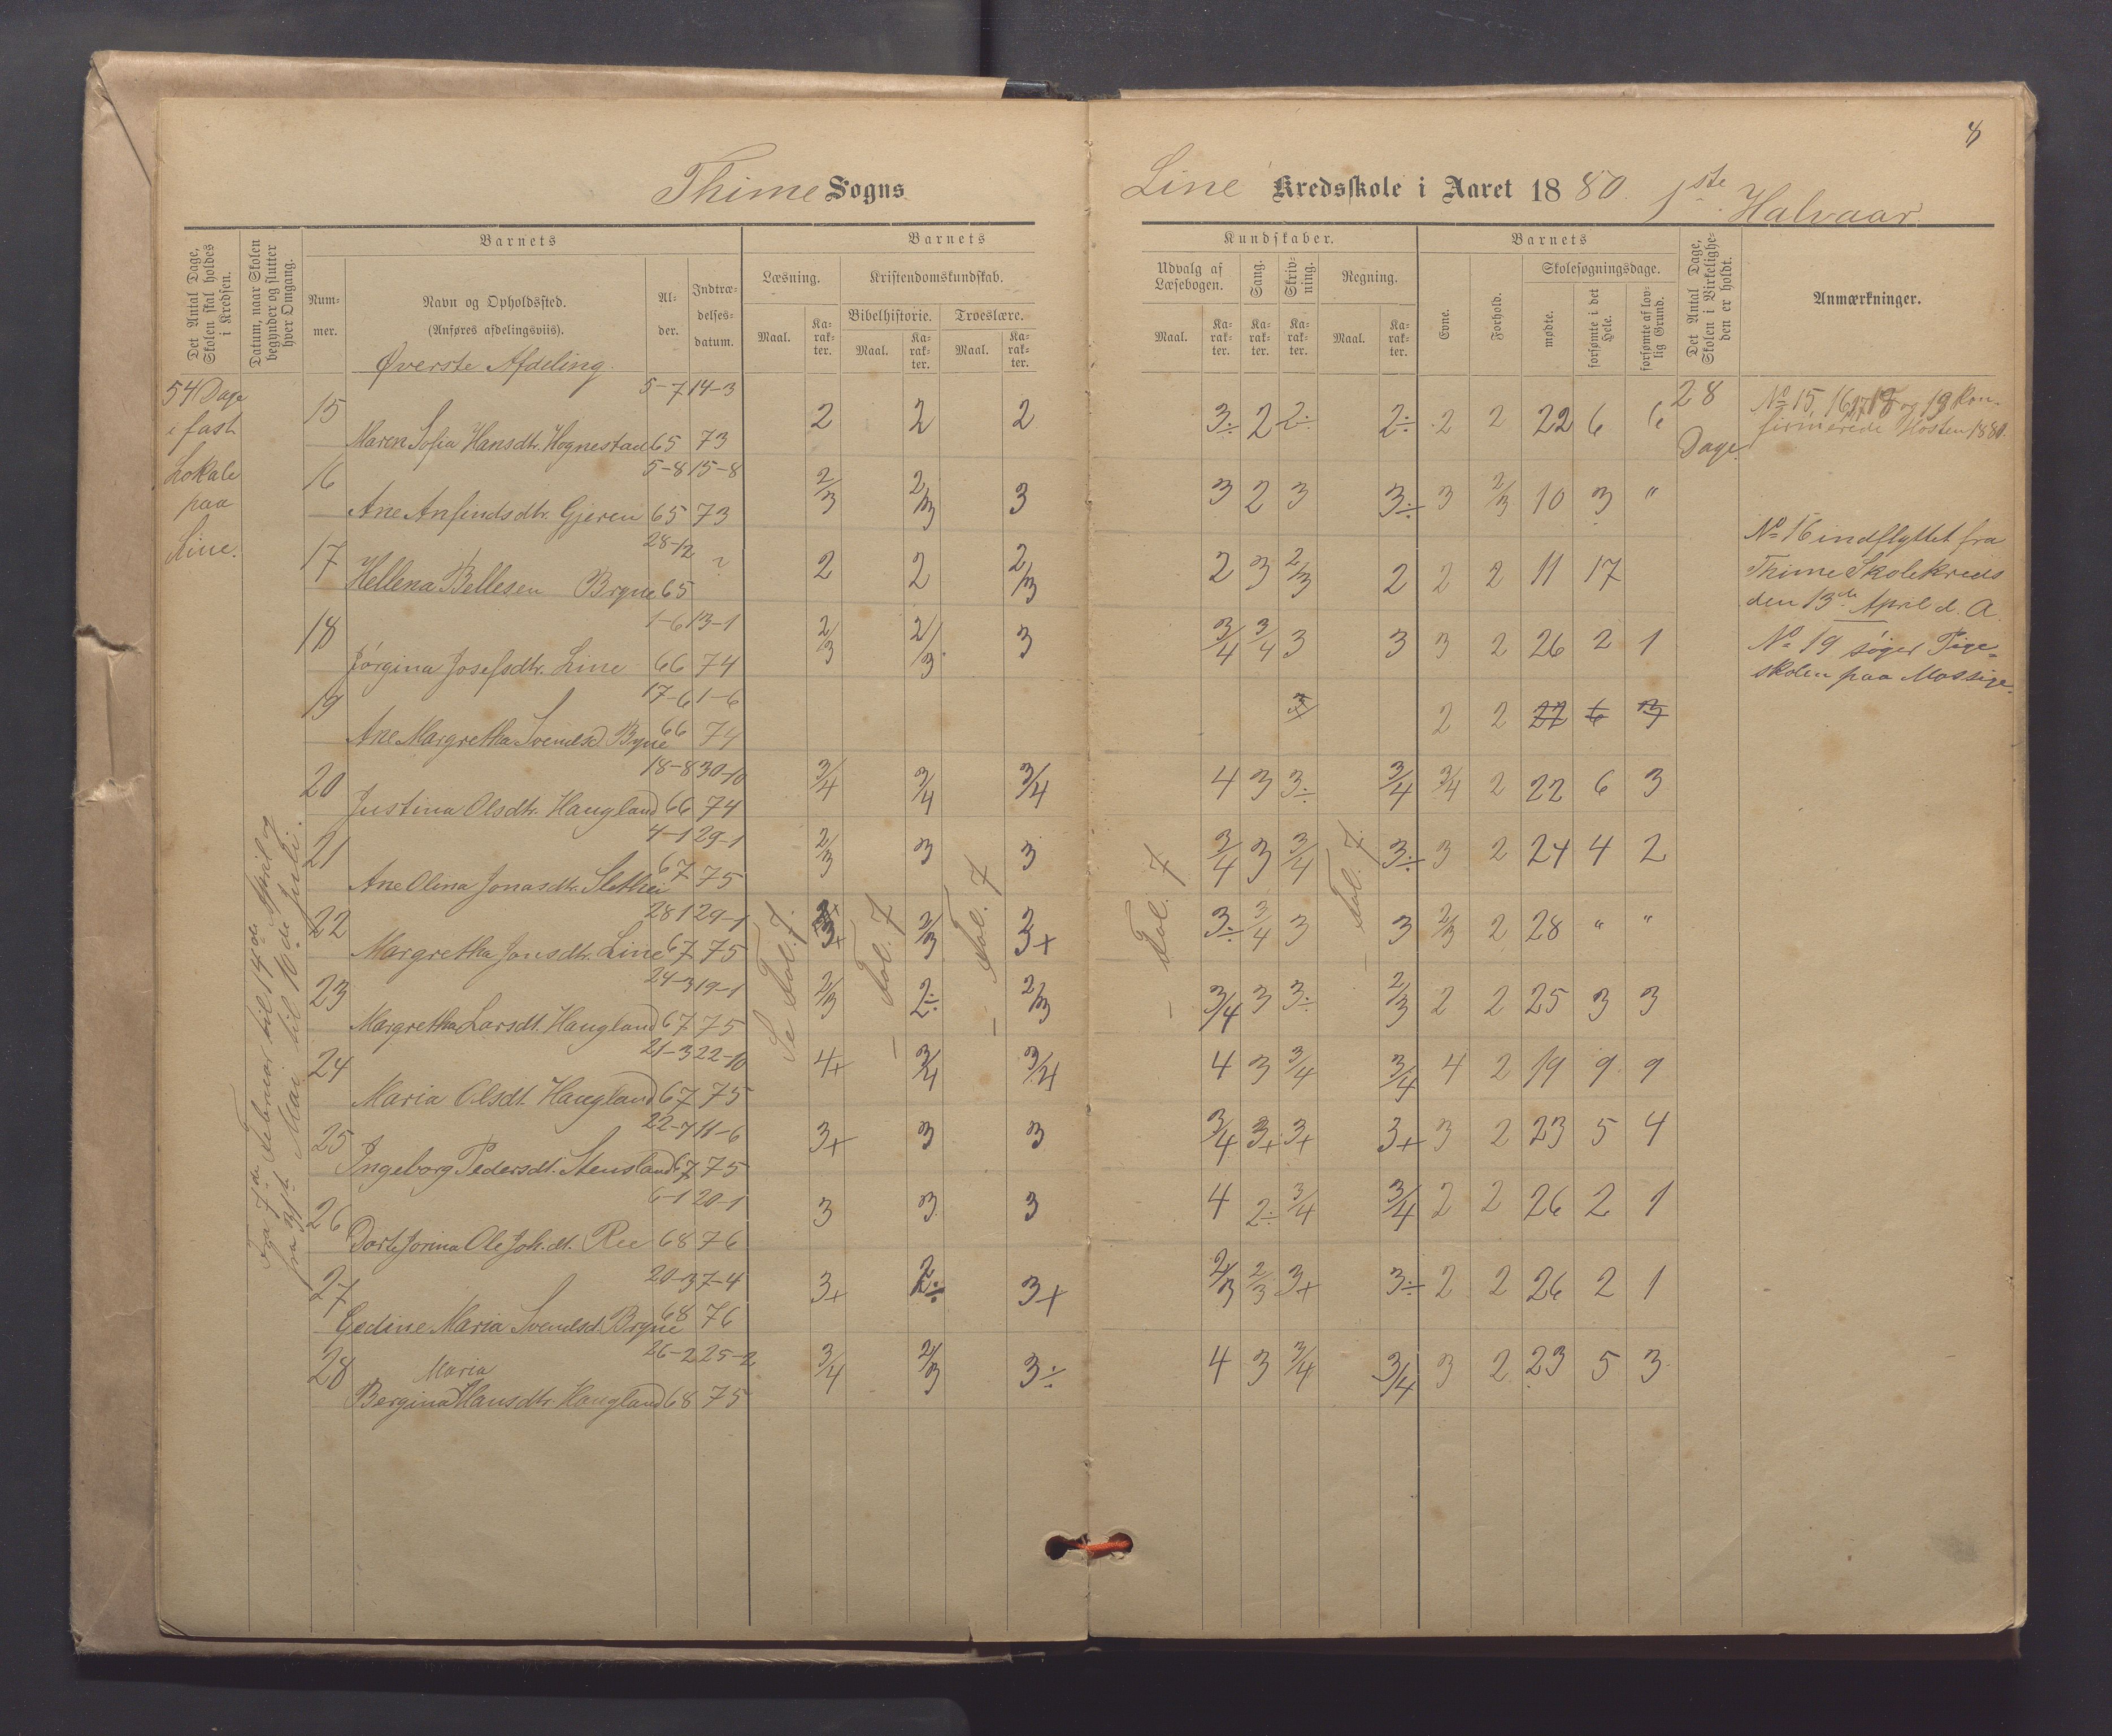 8
Thime Sogns
Line Kredsskole i Aaret 1880. 1ste Halvaar.
Det Antal Dage, Skolen skal holdes i Kredsen.
Datum, naar Skolen begynder og slutter hver Omgang.
Barnets
Nummer.
Navn og Opholdssted.
(Anføres afdelingsviis).
Alder.
Indtrædelsesdatum.
Barnets
Læsning.
Maal.
Karakter.
Kristendomskundskab.
Bibelhistorie.
Maal.
Karakter.
Troeslære.
Maal.
Karakter.
Kundskaber.
Udvalg af Læsebogen.
Maal.
Karakter.
Sang.
Karakter.
Skrivning.
Karakter.
Regning.
Maal.
Karakter.
Barnets
Evne.
Forhold.
Skolesøgningsdage.
mødte.
forsømte i det Hele.
forsømte af lovlig Grund.
Det Antal Dage, Skolen i Virkeligheden er holdt.
Anmærkninger.
Øverste Afdeling.
54 Dage
i fast
Lokale
paa
Line.
Fra 7de Februar til 14de April og
fra Mai til 10de Juli.
15 Maren Sofia Hansdtr. Hognestad 5-7 65 14-3 73 2 2 2 3÷ 2 2÷ 2÷ 2 2 22 6 6
16 Ane Anfindsdtr. Gjeren 5-8 65 15-8 73 2/3 2/3 3 3 2 3 3÷ 3 2/3 10 3 "
17 Hellena Bellesen Bryne 28-12 65 ? 2 2 2/3 2 3 2/3 2 2 2 11 17
18 Jørgina Josefsdtr. Line 1-6 66 13-1 74 2/3 2/3 3 3/4 3/4 3 3 3 2 26 2 1
19 Ane Margretha Svendsd. Bryne 17-6 66 1-6 74 2 2 22 6
20 Justina Olsdtr. Haugland 18-8 66 30-10 74 3/4 3/4 3/4 4 3 3÷ 3/4 3/4 2 22 6 3
21 Ane Olina Jonasdtr. Slethei 4-1 67 29-1 75 2/3 3 3 3/4 3 3/4 3÷ 3 2 24 4 2
22 Margretha Jonsdtr. Line 28 1 67 29-1 75 3+ 2/3 3+ 3÷ 3/4 3 3 2/3 2 28 " "
23 Margretha Larsdt. Haugland 24-3 67 19-1 75 2/3 2÷ 2/3 3/4 3 3÷ 2/3 2 2 25 3 3
24 Maria Olsdt. Haugland 21-3 67 22-10 75 4+ 3/4 3/4 4 3 3/4 3/4 4 2 19 9 9
25 Ingeborg Pedersdt. Stensland 22-7 67 11-6 75 3+ 3 3 3/4 3+ 3+ 3+ 3 2 23 5 4
26 Dorte Jorina Ole Joh.dt. Ree 6-1 68 20-1 76 3 3 3 4 2÷ 3/4 3/4 2 2 26 2 1
27 Gedine Maria Svendsd. Bryne 20-3 68 7-4 76 3+ 2÷ 3+ 2/3 2/3 3+ 3÷ 2 2 26 2 1
28 Bergina Maria Hansdtr. Haugland 26-2 68 25-2 75 3/4 2/3 3÷ 4 3 3/4 3/4 3 2 23 5 3
Se Fol. 7.
– Fol. 7
– Fol. 7
– Fol. 7
– Fol. 7.
28
Dage.
No 15, 16, 17, 18 og 19 kon-
firmerede Høsten 1880.
No 16 indflyttet fra
Thime Skolekreds
den 13de April d. A.
No 19 søger Pige-
skolen paa Mossige.